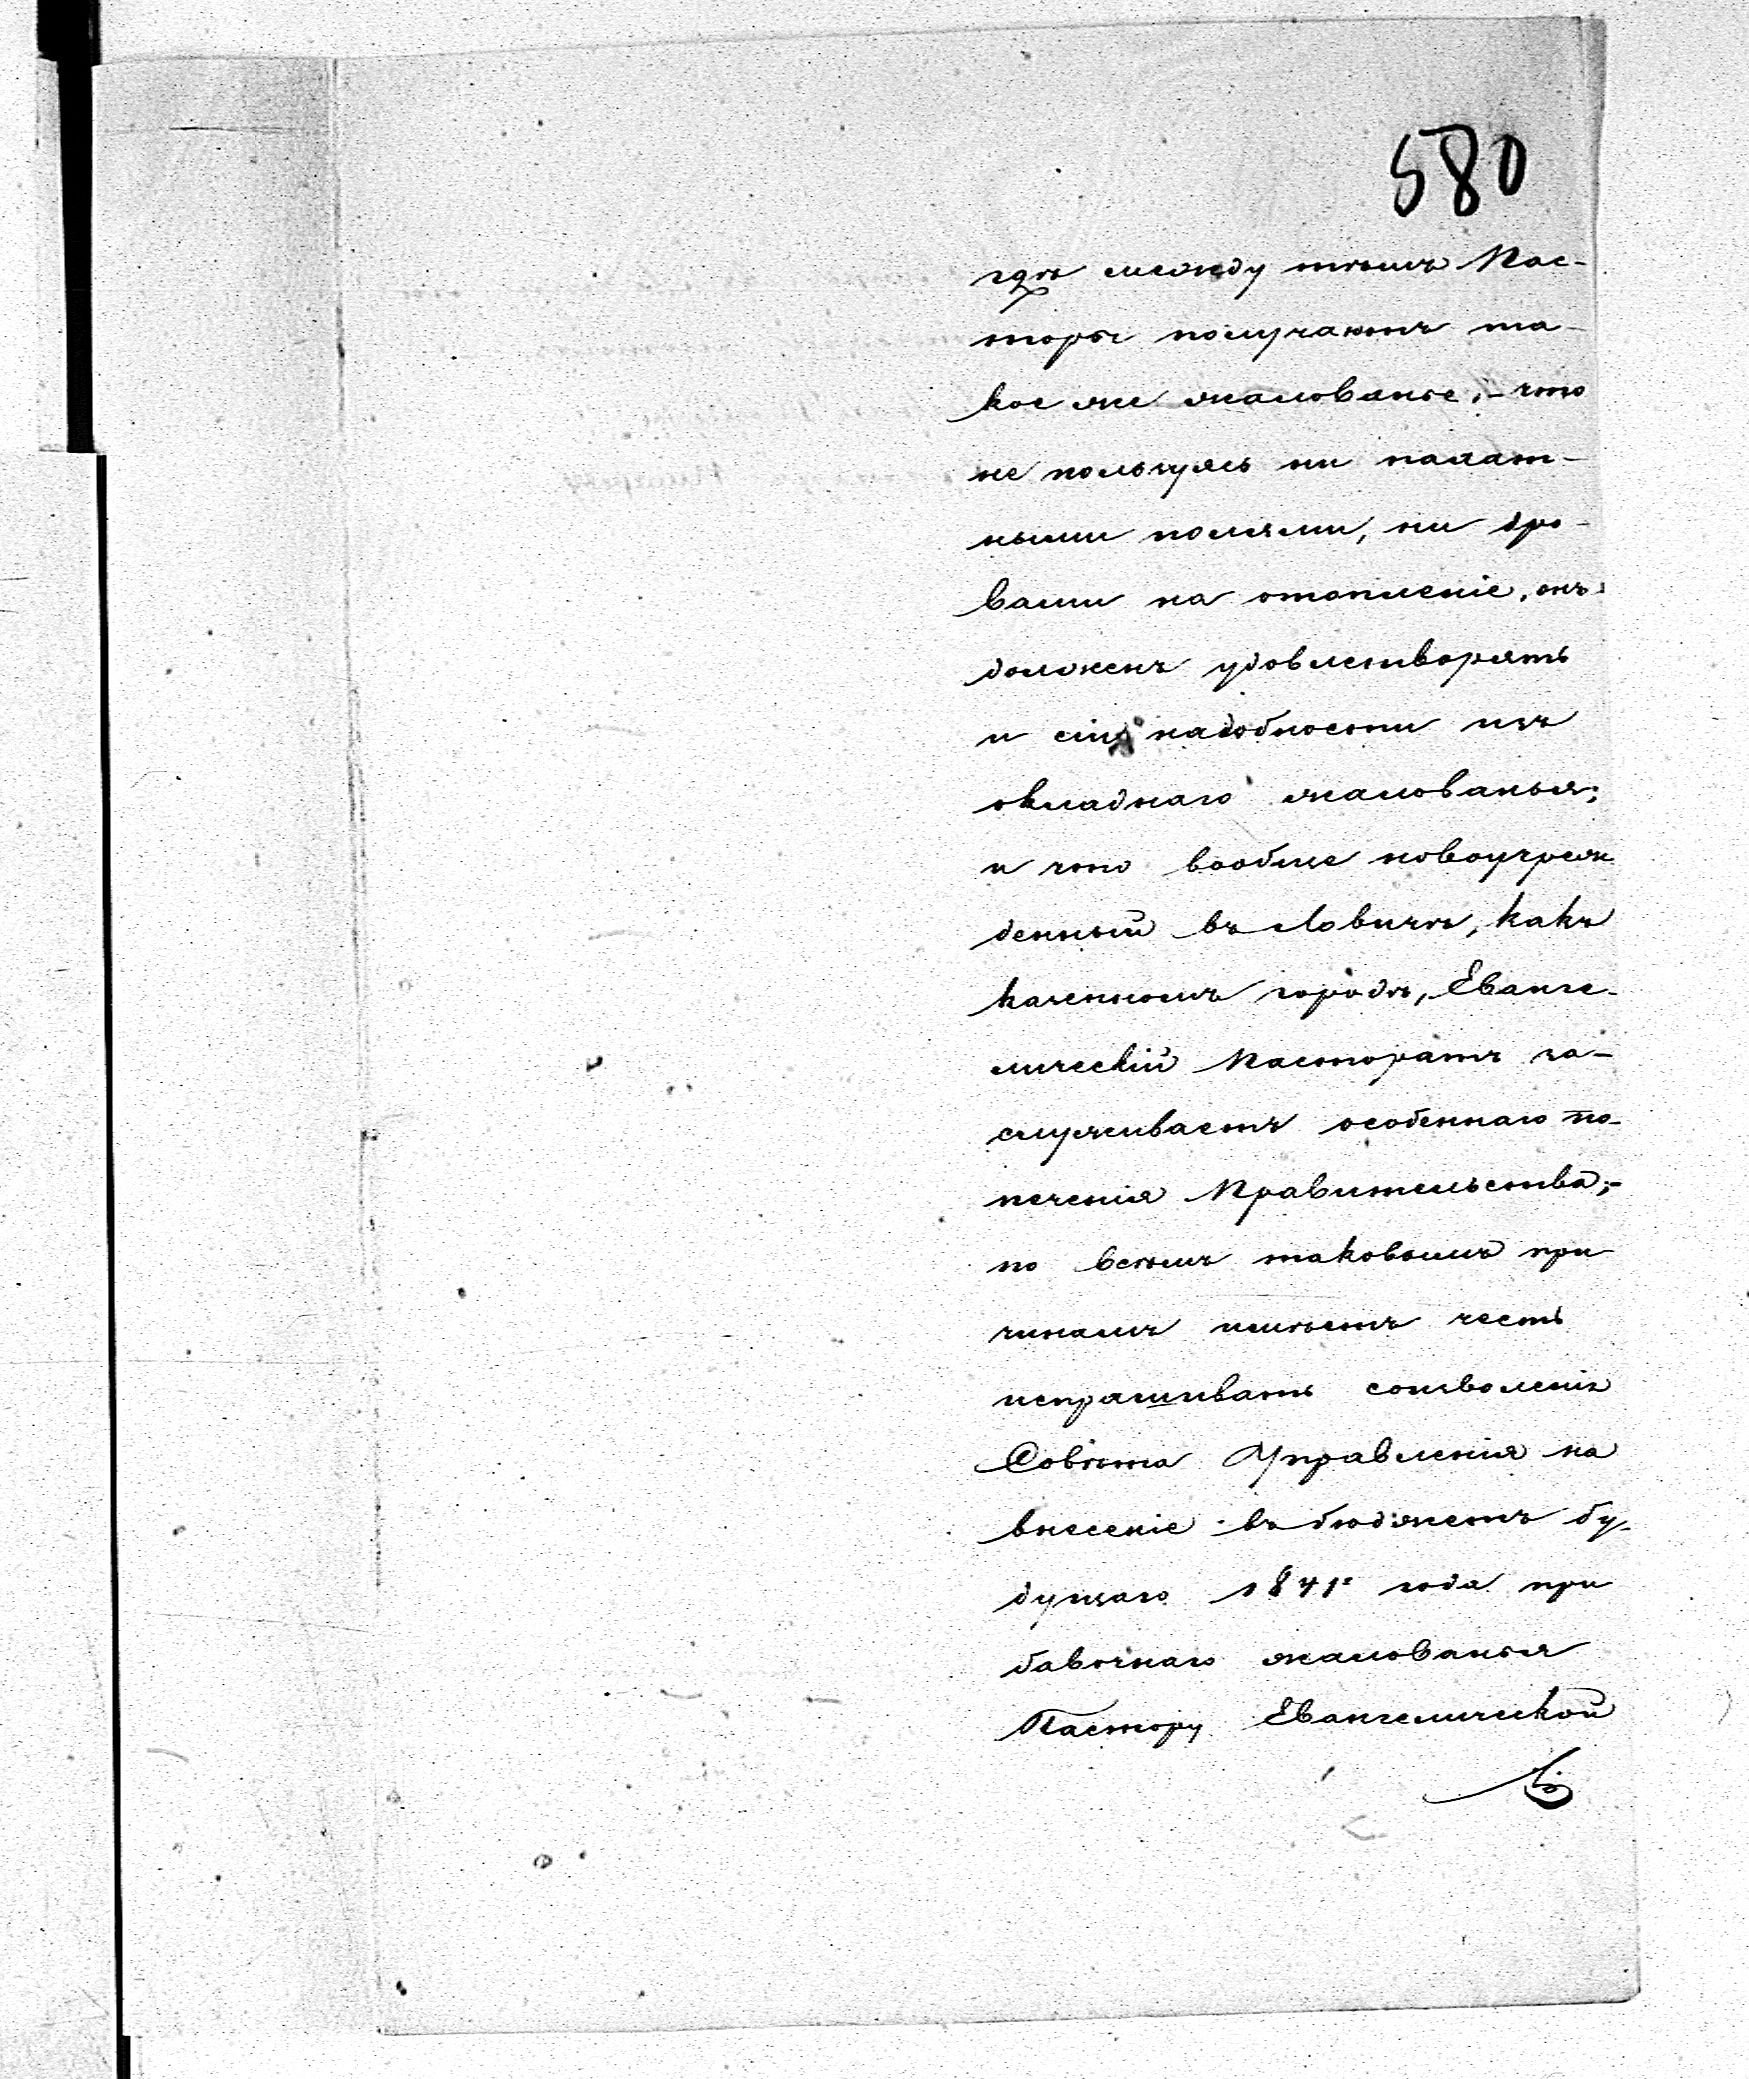 580
гдѣ между тѣмъ Пас-
торы получаютъ та-
кое же жалованье; - что
не пользуясь ни палат-
ными полями, ни дро-
вами на отопленіе, онъ
долженъ удовлетворять
и сіи надобности изъ
окладнаго жалованья;
и что вообще новоучреж
денный въ Ловичѣ, какъ
казенномъ городѣ, Еванге-
лическій Пасторатъ за-
служиваетъ особеннаго по-
печенія Правительства; -
по всѣмъ таковымъ при
чинамъ имѣетъ честь
испрашивать соизволенія
Совѣта Управленія на
внесеніе въ бюджетъ бу-
дущаго 1841г года при
бавочнаго жалованья
Пастору Евангелической